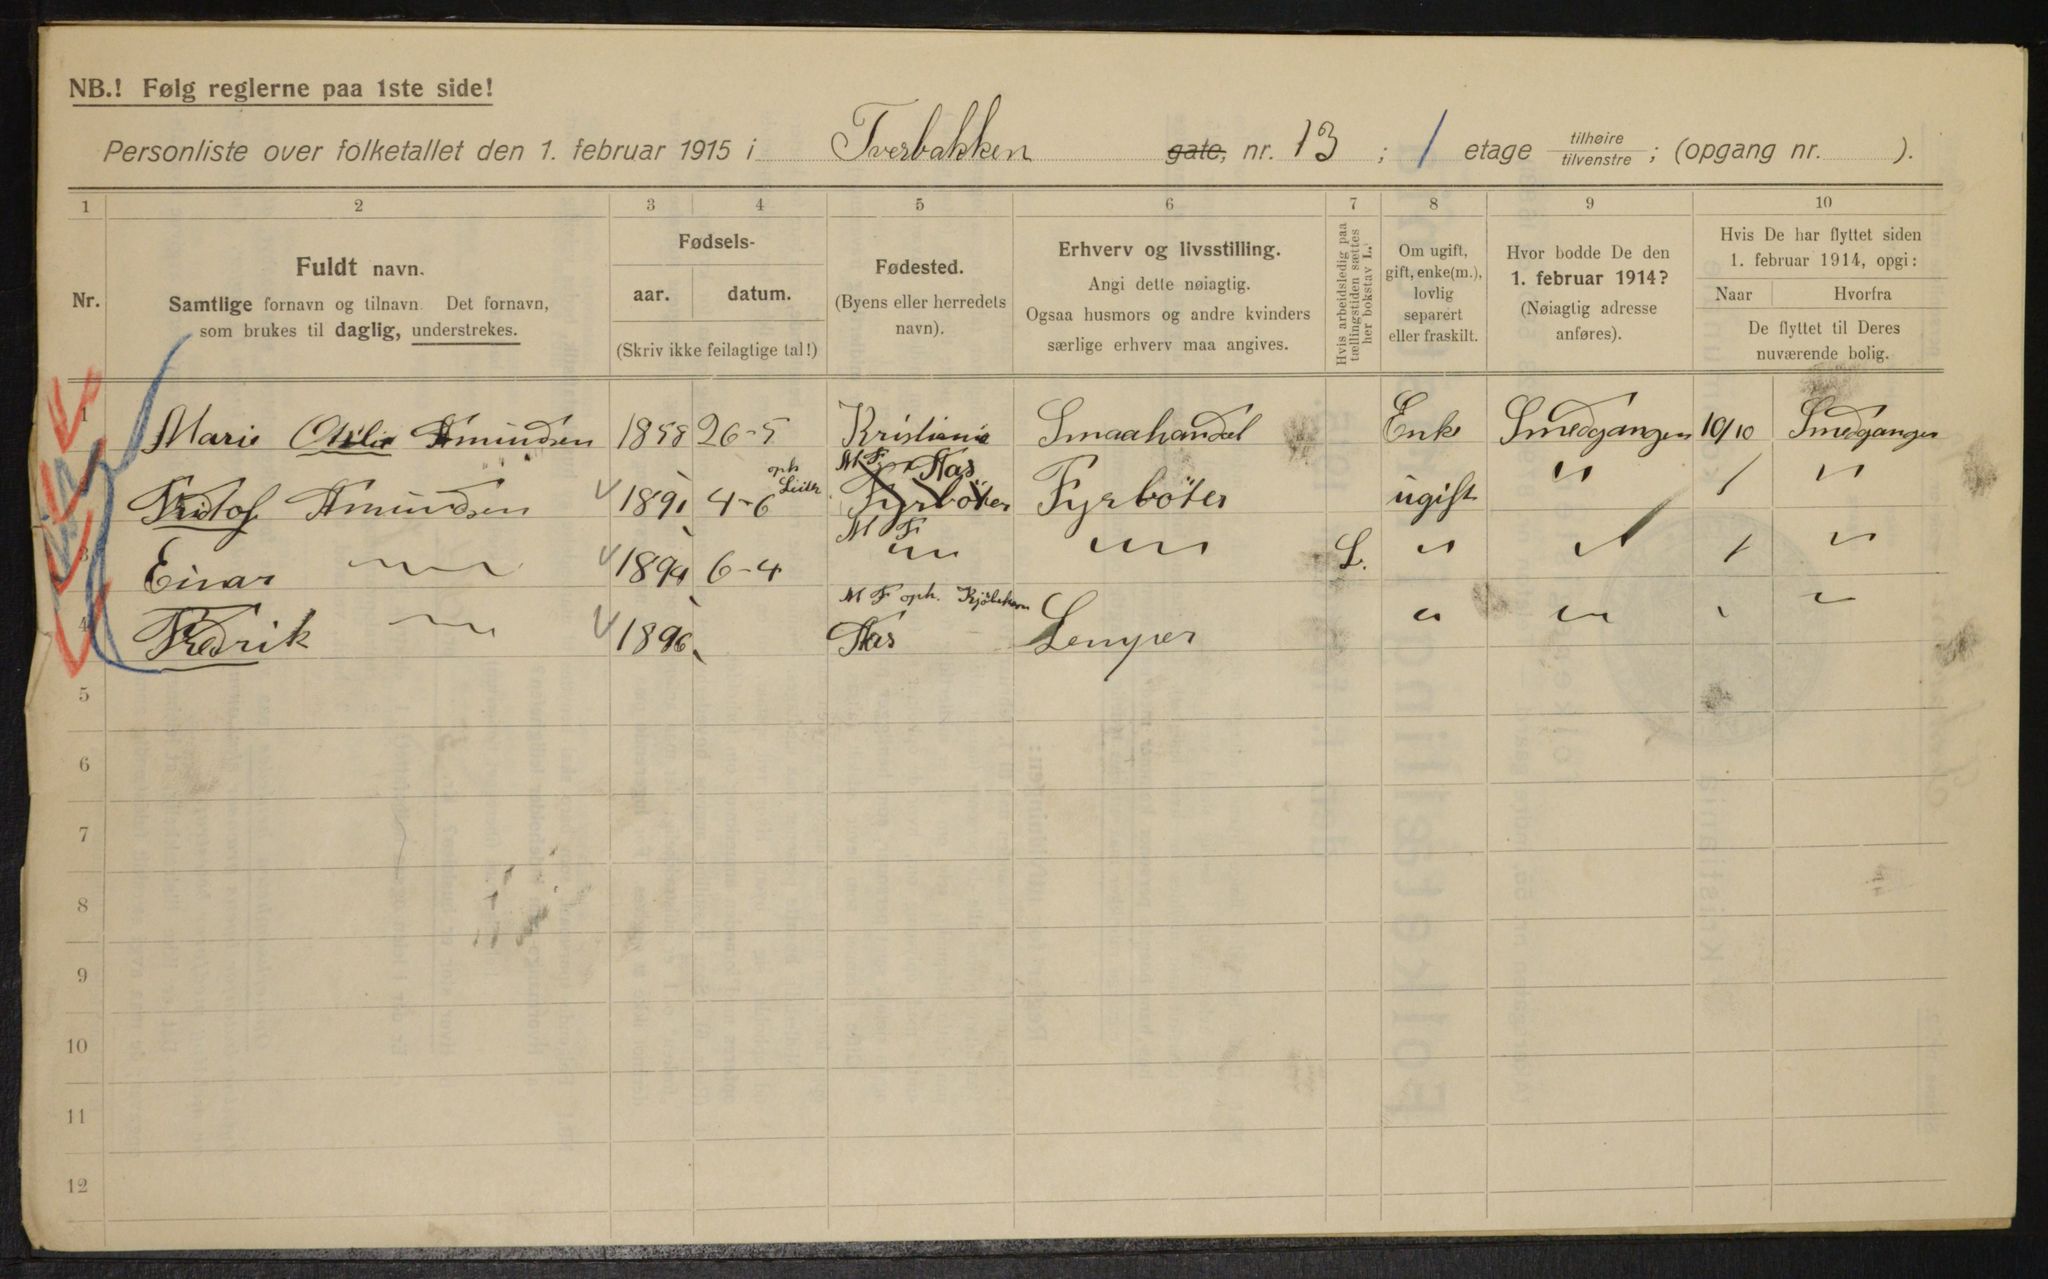 NB.! Følg reglerne paa 1ste side!
Personliste over folketallet den 1. februar 1915 i Tverbakken gate, nr. 13 ; 1 etage tilhøire tilvenstre ; (opgang nr. ).
1 2 3 4 5 6 7 8 9 10
Nr.
Fuldt navn.
Samtlige fornavn og tilnavn. Det fornavn,
som brukes til daglig, understrekes.
Fødsels-
aar. datum.
(Skriv ikke feilagtige tal!)
Fødested.
(Byens eller herredets
navn).
Erhverv og livsstilling.
Angi dette nøiagtig.
Ogsaa husmors og andre kvinders
særlige erhverv maa angives.
Hvis arbeidsledig paa
tællingstiden sættes
her bokstav L.
Om ugift,
gift, enke(m.),
lovlig
separert
eller fraskilt.
Hvor bodde De den
1. februar 1914?
(Nøiagtig adresse
anføres).
Hvis De har flyttet siden
1. februar 1914, opgi:
Naar Hvorfra
De flyttet til Deres
nuværende bolig.
1 Marie Otilie Amundsen 1858 26-5 Kristiania Smaahandel Enke Smedgangen 10/10 Smedgangen
M F Aas
2 Fridtof Amundsen 1891 4-6 Fyrbøter Fyrbøter ugift " / "
M F
3 Einar " 1894 6-4 " " L. " " / "
M F oph.
4 Fredrik " 1896 Aas Lemper " " " "
5
6
7
8
9
10
11
12